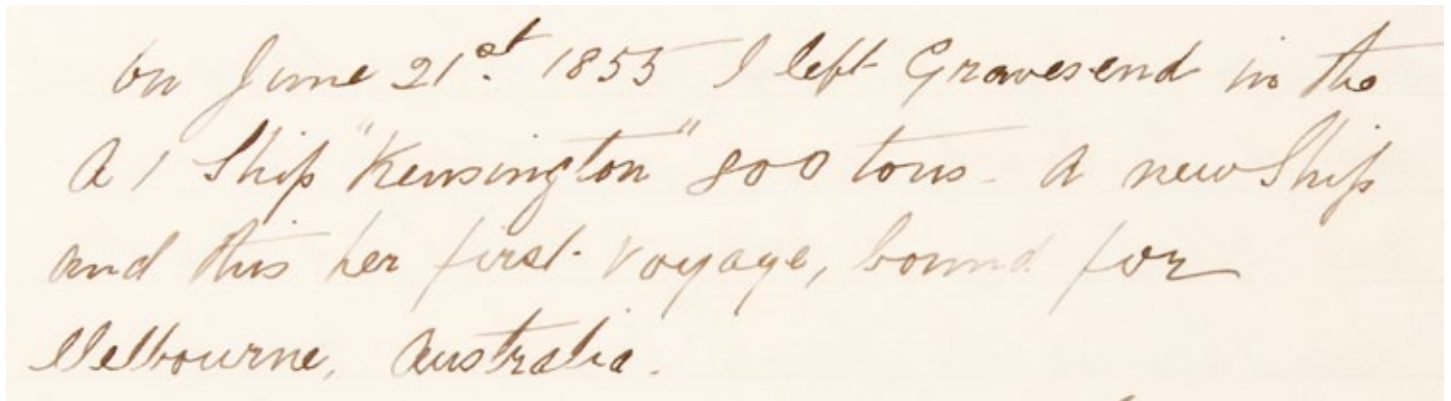 On June 21st. 1853 I left Gravesend in the
A 1 Ship "Kensington" 800 tons. A new Ship
and this her first voyage, bound for
Melbourne, Australia.